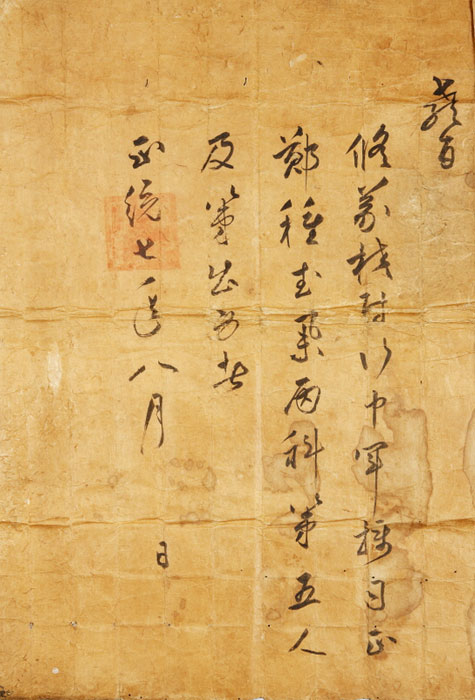 教旨
修義校尉行中軍攝司正
鄭種武丙科第五人
及第出身者
正統七年八月 日